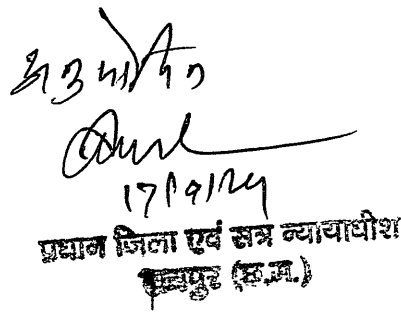 अनुमोदित
17/9/24
प्रधान जिला एवं सत्र न्यायाधीश
रायपुर (छ.ग.)